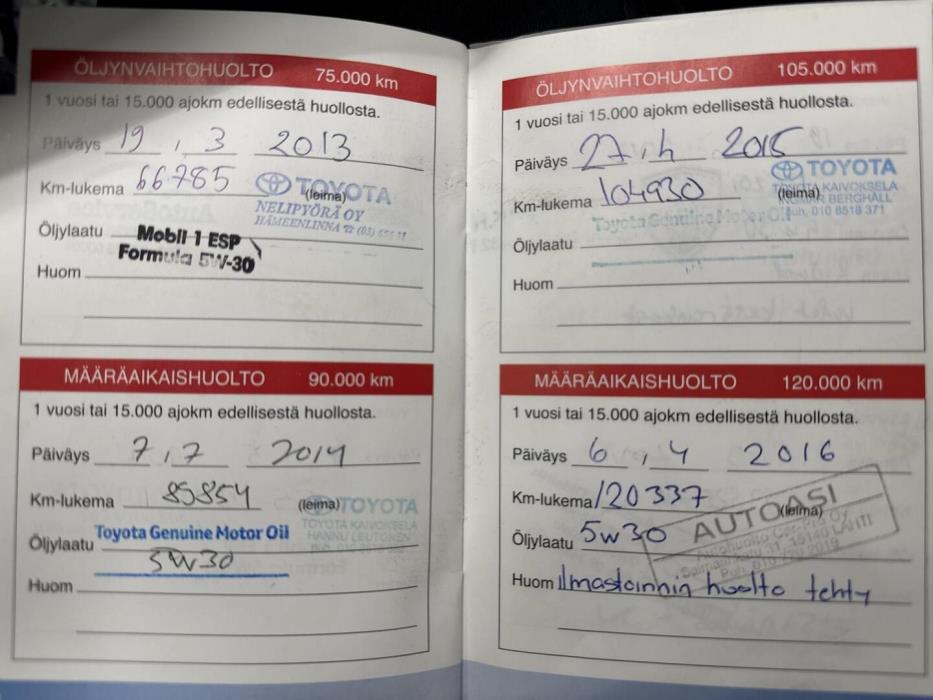 ÖLJYNVAIHTOHUOLTO 75.000 km
1 vuosi tai 15.000 ajokm edellisestä huollosta.
Päiväys 19 , 3 2013
Km-lukema 66.785
(leima)
TOYOTA
NELIPYÖRÄ OY
HÄMEENLINNA ☎ (03)
Öljylaatu Mobil 1 ESP
Formula 5W-30
Huom
MÄÄRÄAIKAISHUOLTO 90.000 km
1 vuosi tai 15.000 ajokm edellisestä huollosta.
Päiväys 7 , 7 2014
Km-lukema 85854
(leima)
TOYOTA
TOYOTA KAIVOKSELA
HANNU LEUTONEN
Öljylaatu Toyota Genuine Motor Oil
5W30
Huom
ÖLJYNVAIHTOHUOLTO 105.000 km
1 vuosi tai 15.000 ajokm edellisestä huollosta.
Päiväys 27 , 4 2015
Km-lukema 104930
(leima)
TOYOTA
TOYOTA KAIVOKSELA
INGMAR BERGHÄLL
Puh. 010 8518 371
Toyota Genuine Motor Oil
Öljylaatu
Huom
MÄÄRÄAIKAISHUOLTO 120.000 km
1 vuosi tai 15.000 ajokm edellisestä huollosta.
Päiväys 6 , 4 2016
Km-lukema 120337
(leima)
AUTOASI
Autohuolto Car-Pro Oy
31, 15140 LAHTI
Öljylaatu 5w30
Huom Ilmastoinnin huolto tehty